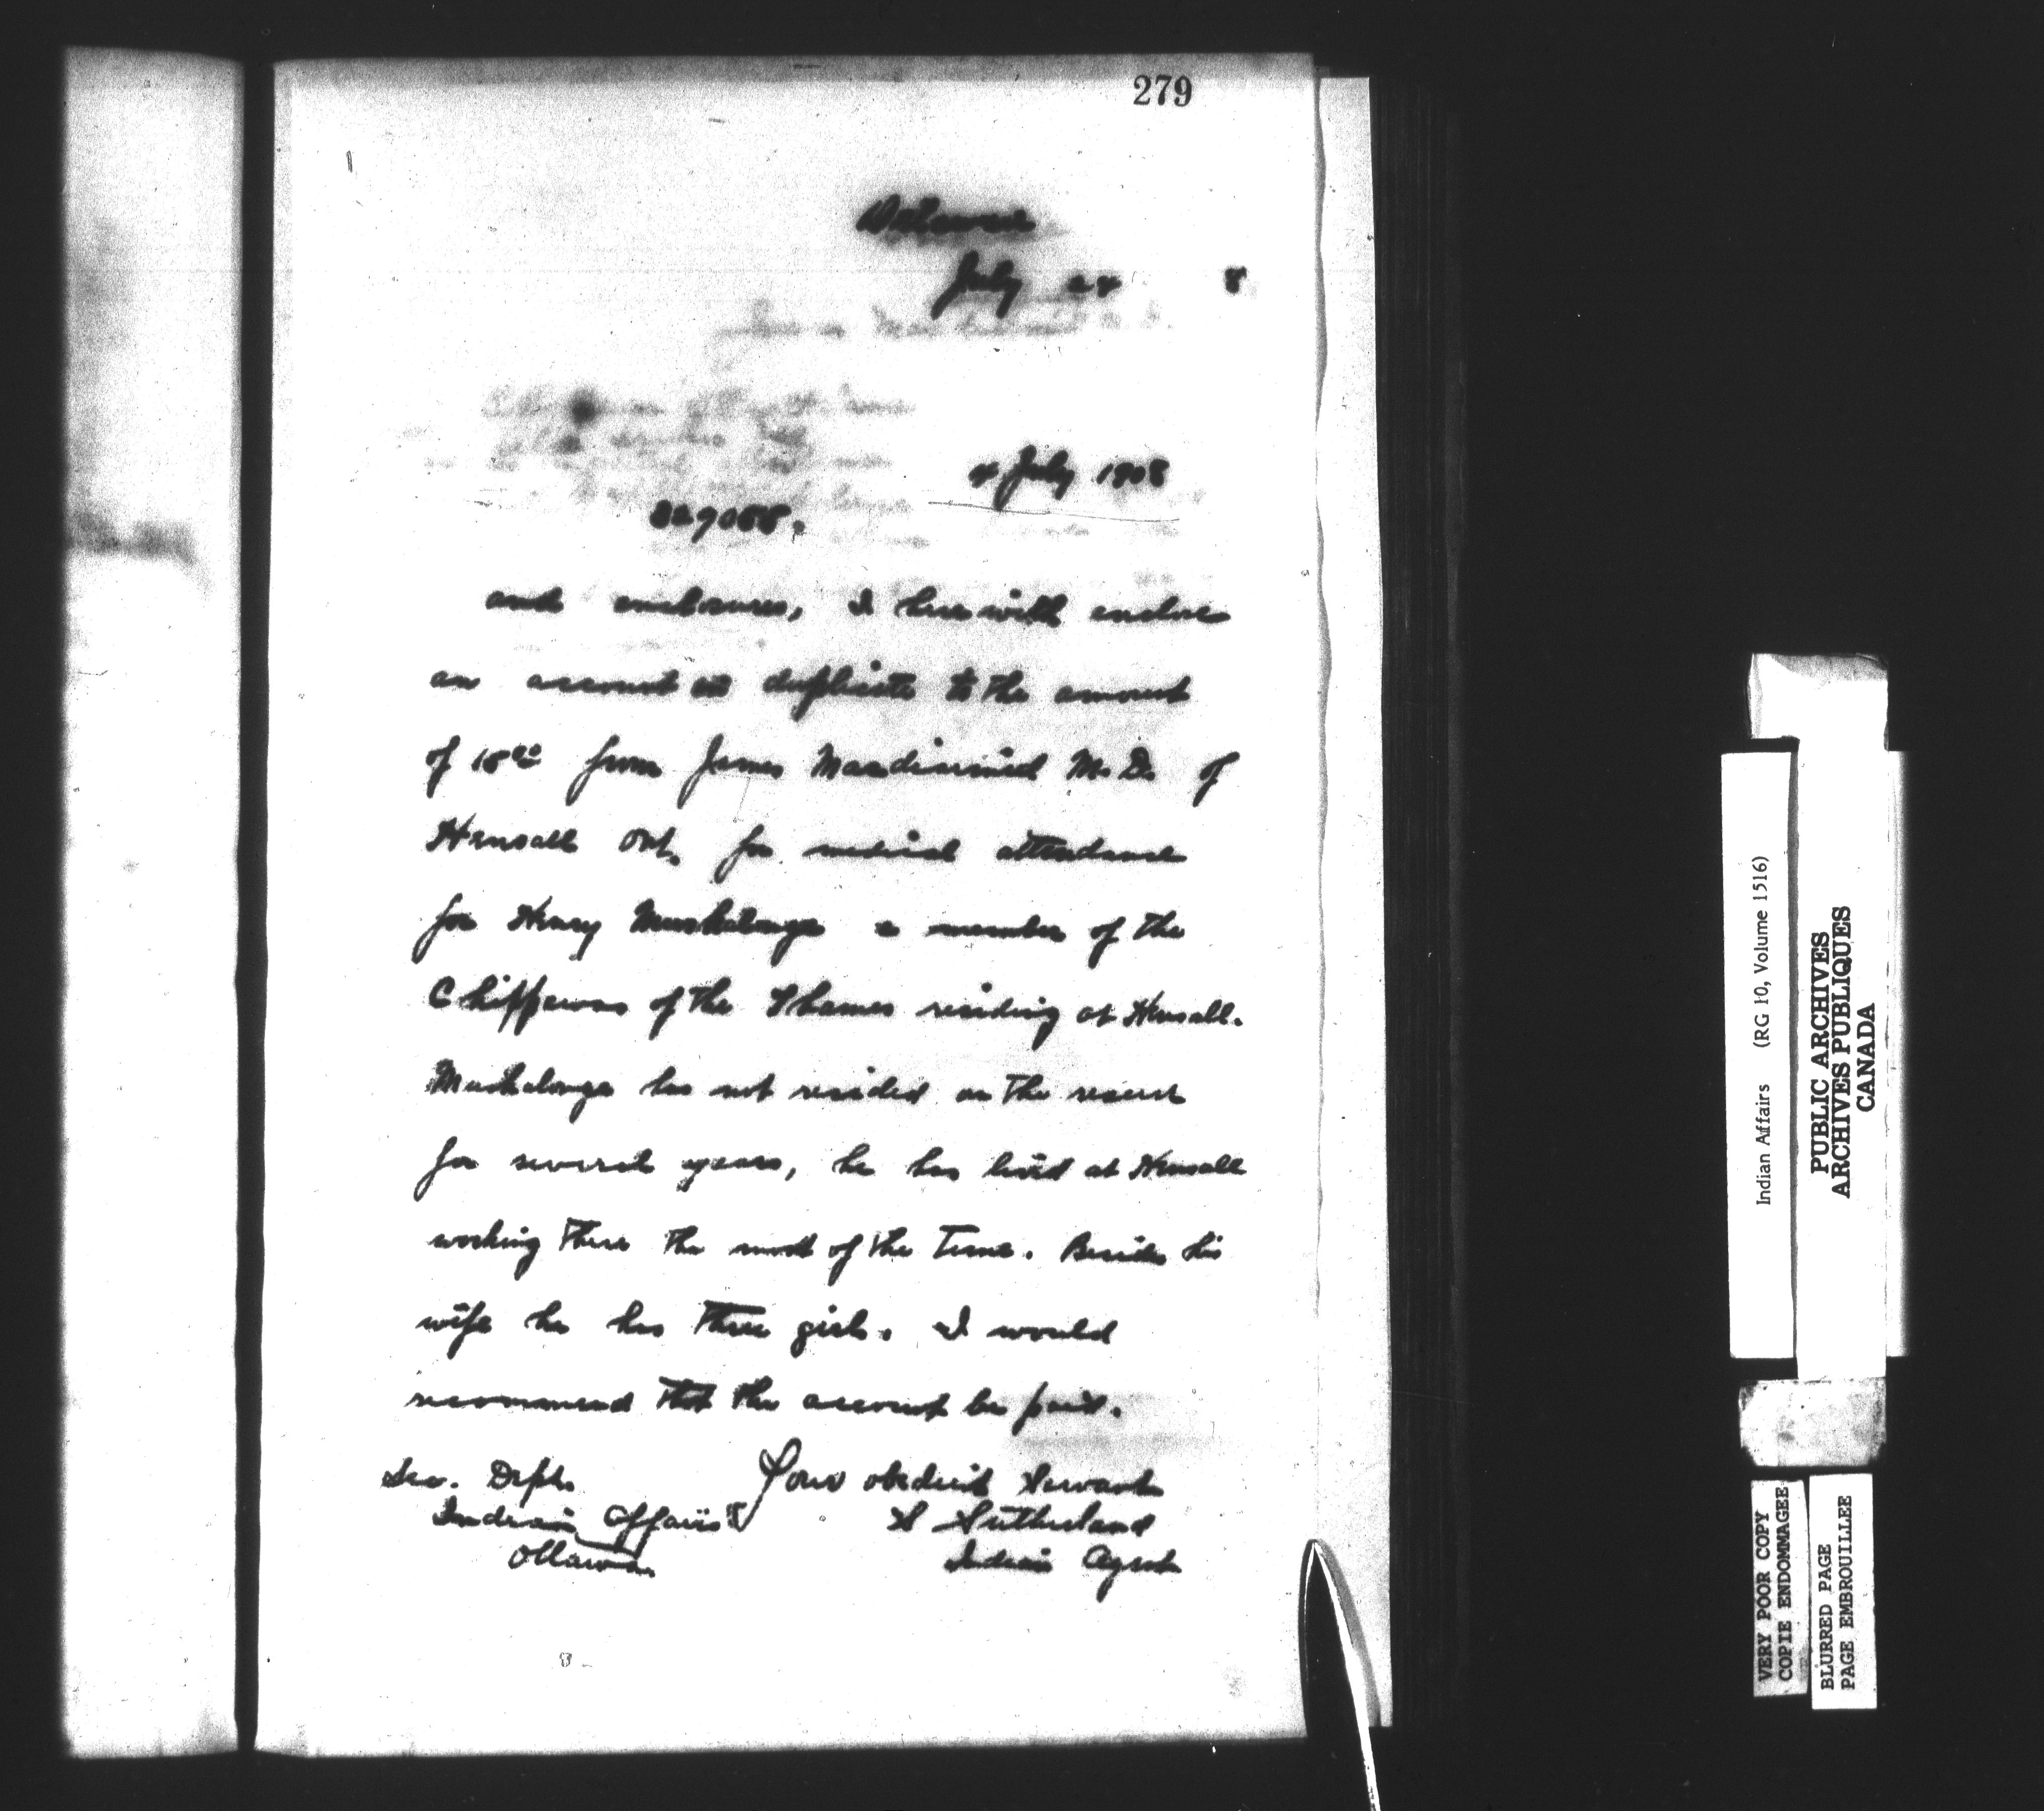 279
Delaware
July 24 8
4 July 1908
329055.
and enclosures, I herewith enclose
an account in duplicate to the amount
of 18 from James M. D. of
Hensall Ont. for medical attendance
for Henry Muskalonge a member of the
Chippewas of the Thames residing at Hensall.
Muskalonge has not resided on the reserve
for several years, he has lived at Hensall
working there the most of the time. Besides his
wife he has three girls. I would
recommend that the account be paid.
Sec. Dept. Your obedient Servant
Indian Affairs S Sutherland
Ottawa Indian Agent
Indian Affairs (RG 10, Volume 1516)
PUBLIC ARCHIVES
ARCHIVES PUBLIQUES
CANADA
VERY POOR COPY
COPIE ENDOMMAGEE
BLURRED PAGE
PAGE EMBROUILLEE